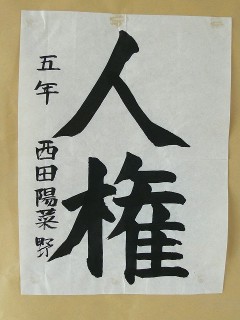 人権
五年 西田陽菜野